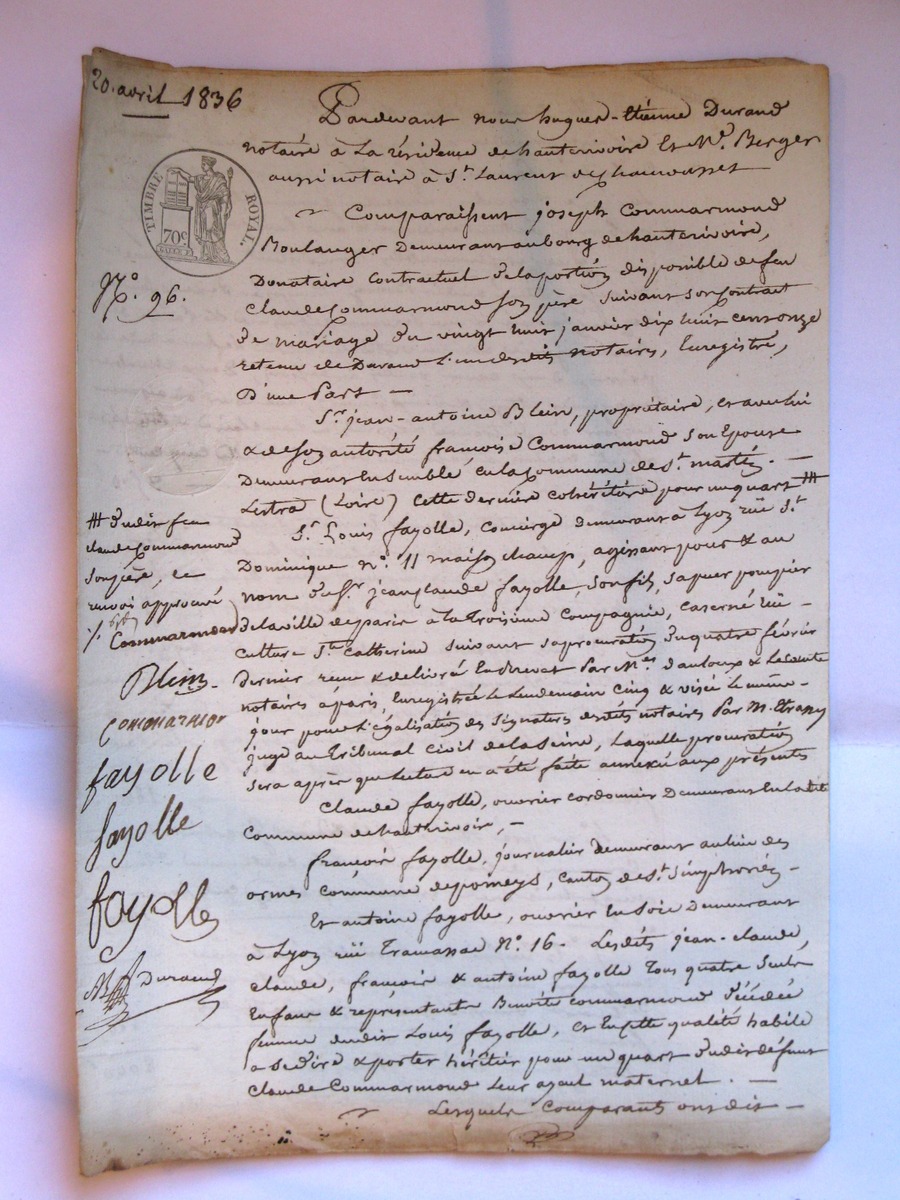 20. avril 1836
Pardevant nous hugues-étienne Durand
notaire à La résidence de hauterivoire Et Me. Berger
aussi notaire à St. Laurent de chamousset
Comparaissent joseph Commarmond
Boulanger Demeurant au bourg de hauterivoire,
Donataire contractuel de la portion disponible de feu
claude Commarmond son père suivant son Contrat
de mariage du vingt huit janvier dix huit cent onze
retenu de Durand L'un desdits notaires, Enregistré,
D'une Part —
Sr. jean-antoine Blein, propriétaire, et avec lui
& de son autorité françoise Commarmond Son Epouse
Demeurant Ensemble en la Commune de St. martin
Lestra (Loire) Cette dernière cohéritière pour un quart #
Sr. Louis fayolle, concierge demeurant à Lyon rüe St.
Dominique n°. 11 maison champ, agissant pour & au
nom du Sr. jean claude fayolle, son fils, sapeur pompier
de la ville de paris à la troisième Compagnie, caserné rüe
culture Ste. catherine suivant sa procuration du quatre février
dernier reçue & delivré En Brevet Par Mes. dauloux & Lecomte
notaires à paris, Enregistrée Le Lendemain cinq & visée le même
jour pour légalisation des signatures desdits notaires Par M.
juge au Tribunal Civil de la Seine, Laquelle procuration
sera après que Lecture en a été faite annexée aux présentes
Claude fayolle, ouvrier cordonnier Demeurant En ladite
Commune de hauterivoire, —
françois fayolle, journalier Demeurant au lieu des
ormes Commune de pomeys, canton de St. Simphorien —
Et antoine fayolle, ouvrier En Soie Demeurant
à Lyon rüe Tramassac N°. 16. Lesdits jean-claude,
claude, françois & antoine fayolle Tous quatre Seuls
Enfans & représentants Benoite commarmond Décédée
femme dudit Louis fayolle, et En cette qualité habile
a se dire & porter héritier pour un quart dudit défunt
claude Commarmond Leur ayeul maternel. —
Lesquels Comparants ont dit —
TIMBRE ROYAL
70c
N°. 96.
# dudit feu
claude Commarmond
son père, ce
renvoi approuvé
Commarmond
Blein
Commarmon
fayolle
fayolle
fayolle
Durand